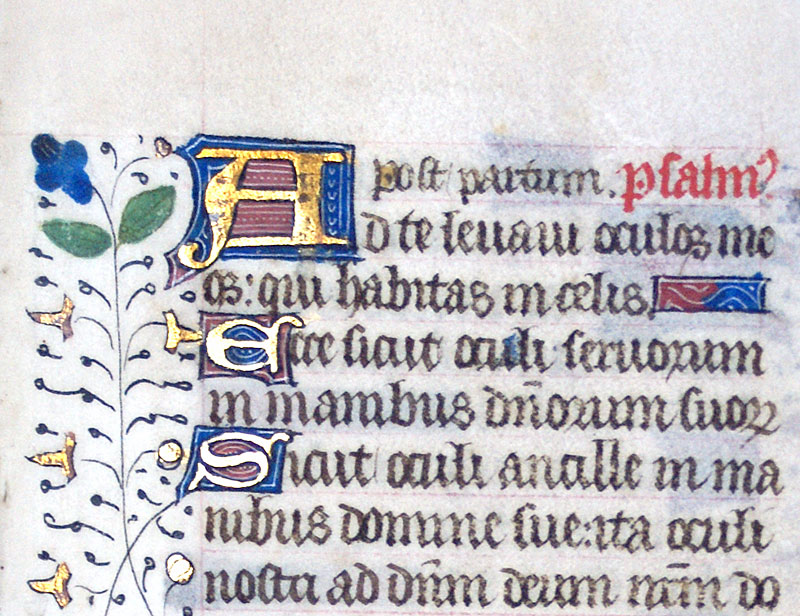 post partum. psalm9
Ad te leuaui oculos me
os: qui habitas in celis.
Ecce sicut oculi seruorum
in manibus dn̄orum suoꝝ
Sicut oculi ancille in ma
nibus domine sue: ita oculi
nostri ad dn̄m deum nr̄m do